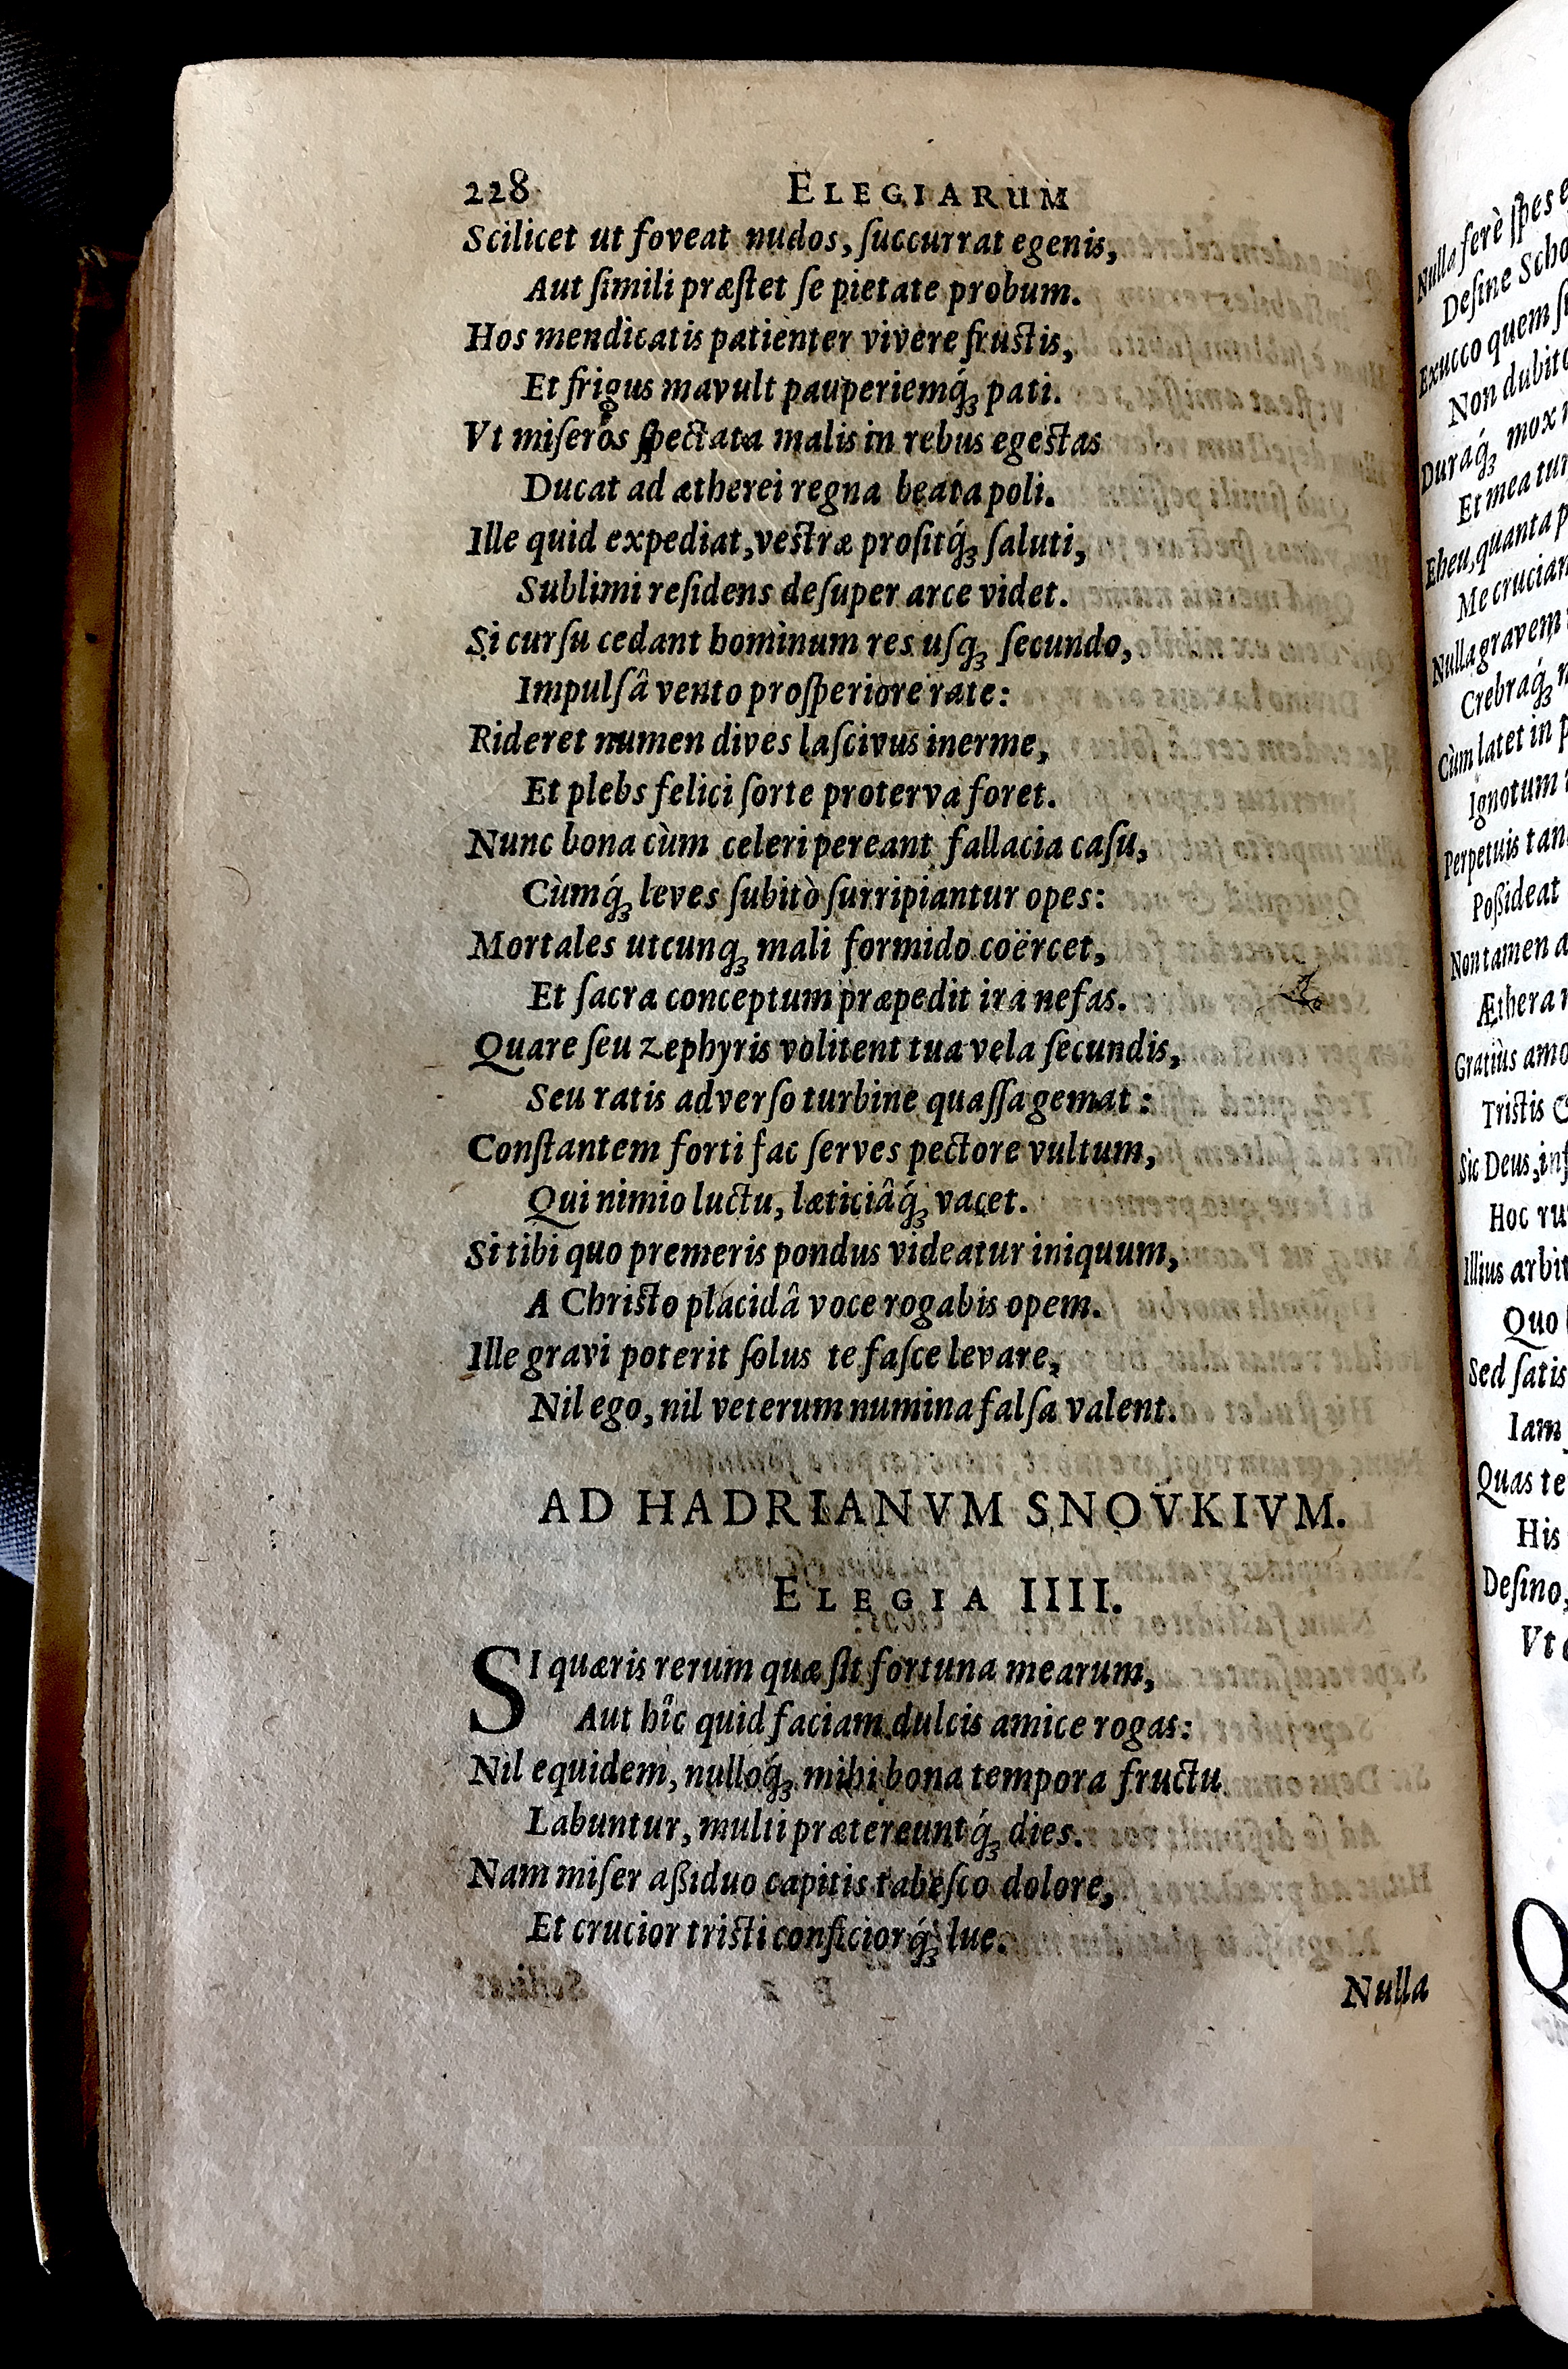 228 ELEGIARUM
Scilicet ut foveat nudos, ſuccurrat egenis,
Aut ſimili præſtet ſe pietate probum.
Hos mendicatis patienter vivere fruſtis,
Et frigus mavult pauperiemq́ꝫ pati.
Vt miſeros ſpectata malis in rebus egeſtas
Ducat ad ætherei regna beata poli.
Ille quid expediat, veſtræ proſitq́ꝫ ſaluti,
Sublimi reſidens deſuper arce videt.
Si curſu cedant hominum res uſqꝫ ſecundo,
Impulſâ vento proſperiore rate:
Rideret numen dives laſcivus inerme,
Et plebs felici ſorte proterva foret.
Nunc bona cùm celeri pereant fallacia caſu,
Cùmq́ꝫ leves ſubitò ſurripiantur opes:
Mortales utcunqꝫ mali formido coërcet,
Et ſacra conceptum præpedit ira nefas.
Quare ſeu zephyris volitent tua vela ſecundis,
Seu ratis adverſo turbine quaſſa gemat:
Conſtantem forti fac ſerves pectore vultum,
Qui nimio luctu, læticiâq́ꝫ vacet.
Si tibi quo premeris pondus videatur iniquum,
A Chriſto placidâ voce rogabis opem.
Ille gravi poterit ſolus te faſce levare,
Nil ego, nil veterum numina falſa valent.
AD HADRIANVM SNOVKIVM.
ELEGIA IIII.
SI quæris rerum quæ ſit fortuna mearum,
Aut hîc quid faciam dulcis amice rogas:
Nil equidem, nulloq́ꝫ mihi bona tempora fructu
Labuntur, multi prætereuntq́ꝫ dies.
Nam miſer aßiduo capitis tabeſco dolore,
Et crucior triſti conficiorq́ꝫ lue.
Nulla
Nulla ferè ſpes
Deſine
Exucco quem
Non
Duraq́ꝫ mox
Et mea
Eheu, quanta
Me
Nulla gravem
Crebraq́ꝫ
Cùm latet in
Ignotum
Perpetuis
Poßideat
Non tamen
Æthera
Gratiùs
Triſtis
Sic Deus,
Hoc
Illius
Quo
Sed ſatis
Iam
Quas te
His
Deſino,
Vt
Q